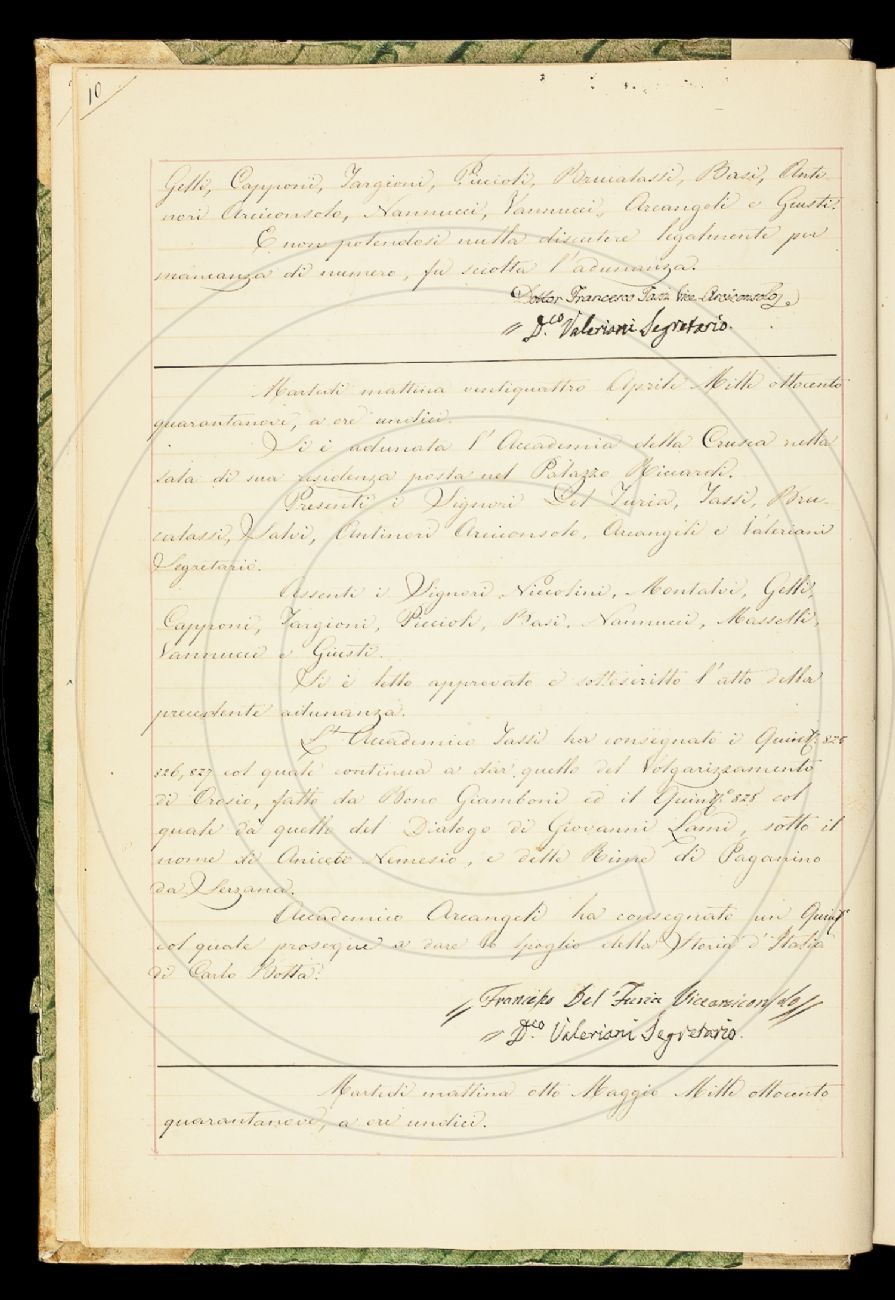 10
Gelli, Capponi, Targioni, Piccioli, Brucalassi, Basi, Anti-
nori Arciconsolo, Nannucci, Vannucci, Arcangeli e Giusti.
E non potendosi nulla discutere legalmente per
mancanza di numero, fu sciolta l'adunanza.
Dottor Francesco Tassi Vice-Arciconsolo
D.co Valeriani Segretario.
Martedì mattina ventiquattro Aprile Mille ottocento
quarantanove, a ore undici.
Si è adunata l'Accademia della Crusca nella
sala di sua residenza posta nel Palazzo Riccardi.
Presenti i Signori Del Furia, Tassi, Bru-
calassi, Salvi, Antinori Arciconsolo, Arcangeli e Valeriani
Segretario.
Assenti i Signori Niccolini, Montalvi, Gelli,
Capponi, Targioni, Piccioli, Basi, Nannucci, Masselli,
Vannucci e Giusti.
Si è letto approvato e sottoscritto l'atto della
precedente adunanza.
L'Accademico Tassi ha consegnato i Quint.i 825
826, 827 col quale continua a dar quello del Volgarizzamento
di Orosio, fatto da Bono Giamboni ed il Quint.o 828 col
quale dà quello del Dialogo di Giovanni Lami, sotto il
nome di Aniceto Nemesio, e delle Rime di Paganino
da Serzana.
Accademico Arcangeli ha consegnato un Quint.o
col quale prosegue a dare lo spoglio della Storia d'Italia
di Carlo Botta.
Francesco Del Furia Vicearciconsolo
D.co Valeriani Segretario.
Martedì mattina otto Maggio Mille ottocento
quarantanove, a ore undici.